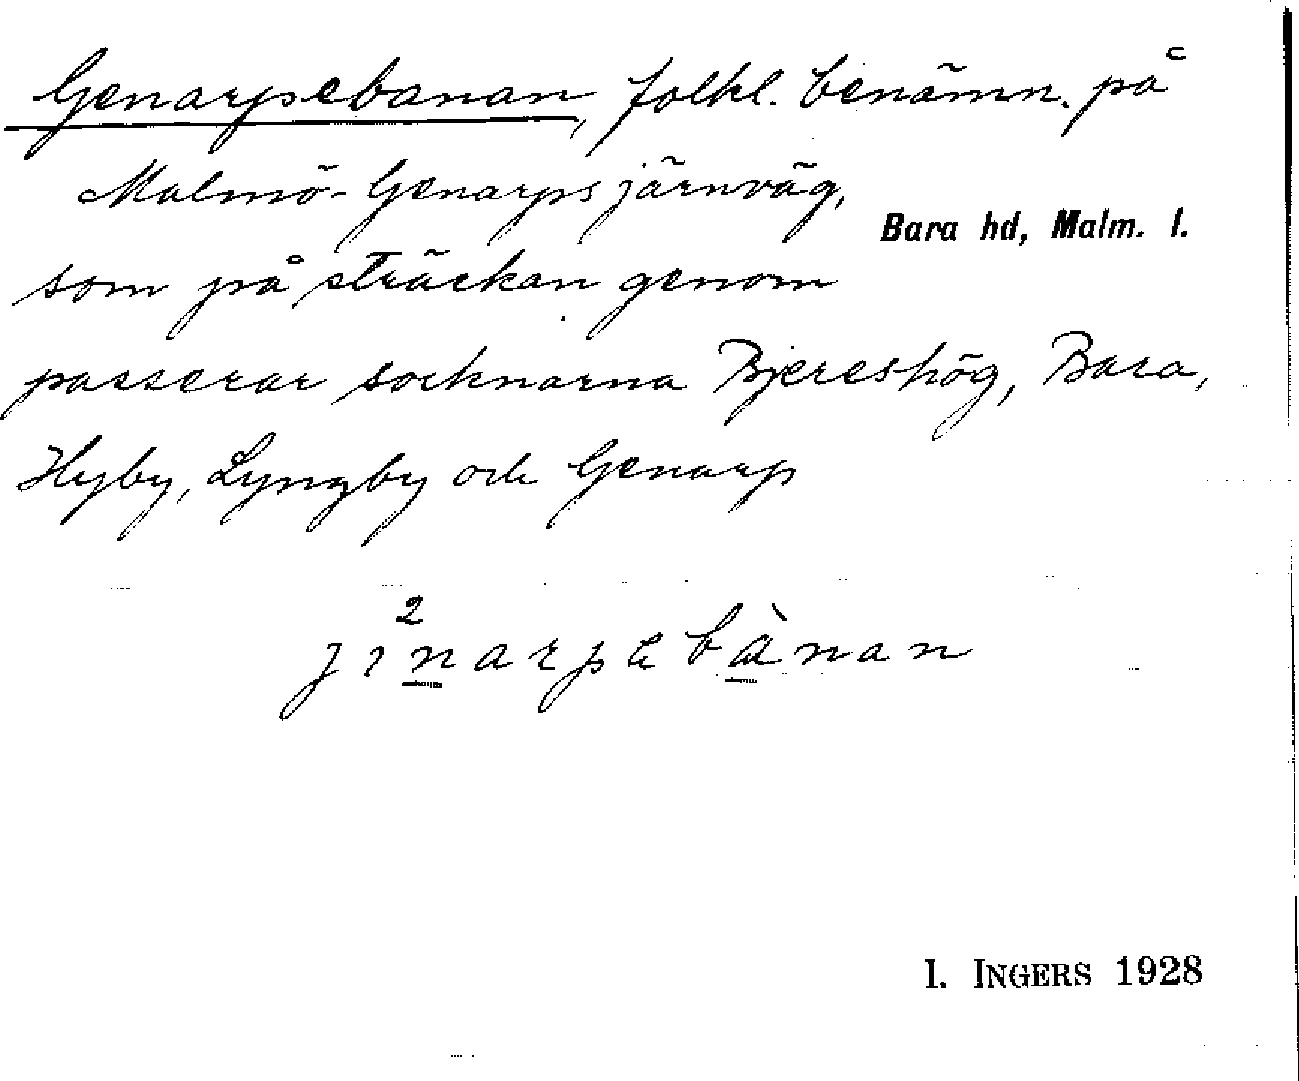 Genarpsebanan, folkl. benämn. på
Malmö-Genarps järnväg,
som på sträckan genom
Bara hd, Malm. l.
passerar socknarna Bjereshög, Bara,
Hyby, Lyngby och Genarp
I. INGERS 1928